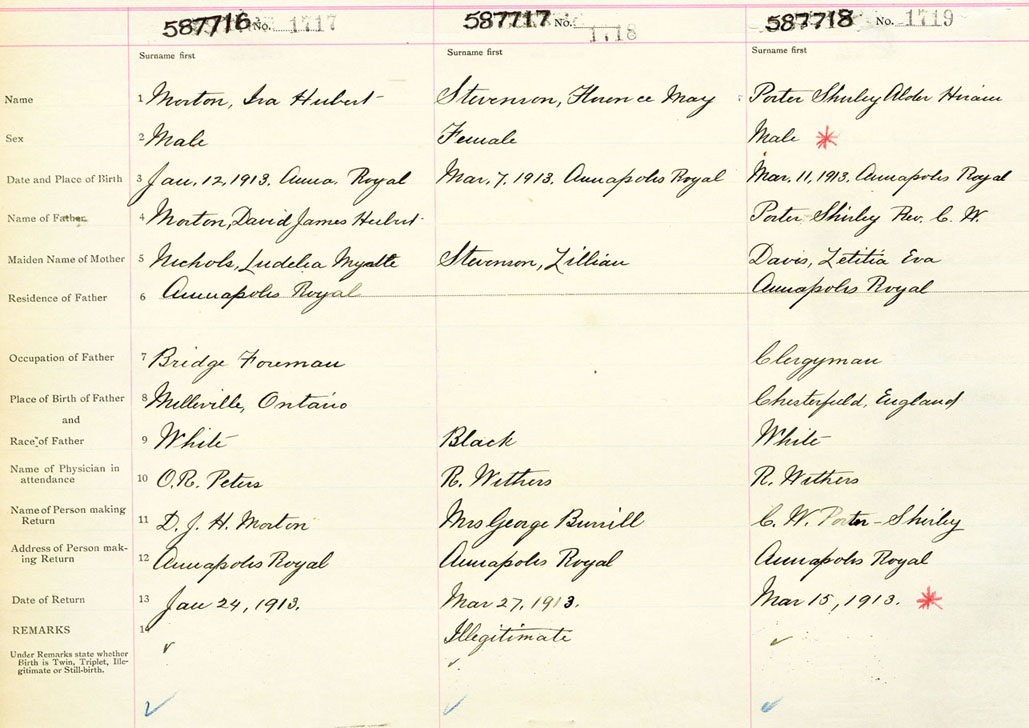 587716 No. 1717 587717 No. 1718 587718 No. 1719
Surname first Surname first Surname first
Name 1 Morton, Ira Hubert Stevenson, Florence May Porter Shirley Alder Hiram
Sex 2 Male Female Male
Date and Place of Birth 3 Jan. 12, 1913. Anna. Royal Mar. 7, 1913. Annapolis Royal Mar. 11, 1913. Annapolis Royal
Name of Father 4 Morton, David James Hubert Porter Shirley Rev. C. W.
Maiden Name of Mother 5 Nichols, Ludelia Myrtle Stevenson, Lillian Davis, Letitia Eva
Residence of Father 6 Annapolis Royal Annapolis Royal
Occupation of Father 7 Bridge Foreman Clergyman
Place of Birth of Father 8 Milleville, Ontario Chesterfield, England
and
Race of Father 9 White Black White
Name of Physician in
attendance 10 O.R. Peters R. Withers R. Withers
Name of Person making
Return 11 D. J. H. Morton Mrs George Burrill C. W. Porter-Shirley
Address of Person mak-
ing Return 12 Annapolis Royal Annapolis Royal Annapolis Royal
Date of Return 13 Jan 24, 1913. Mar 27, 1913. Mar 15, 1913.
REMARKS 14 Illegitimate
Under Remarks state whether
Birth is Twin, Triplet, Ille-
gitimate or Still-birth.